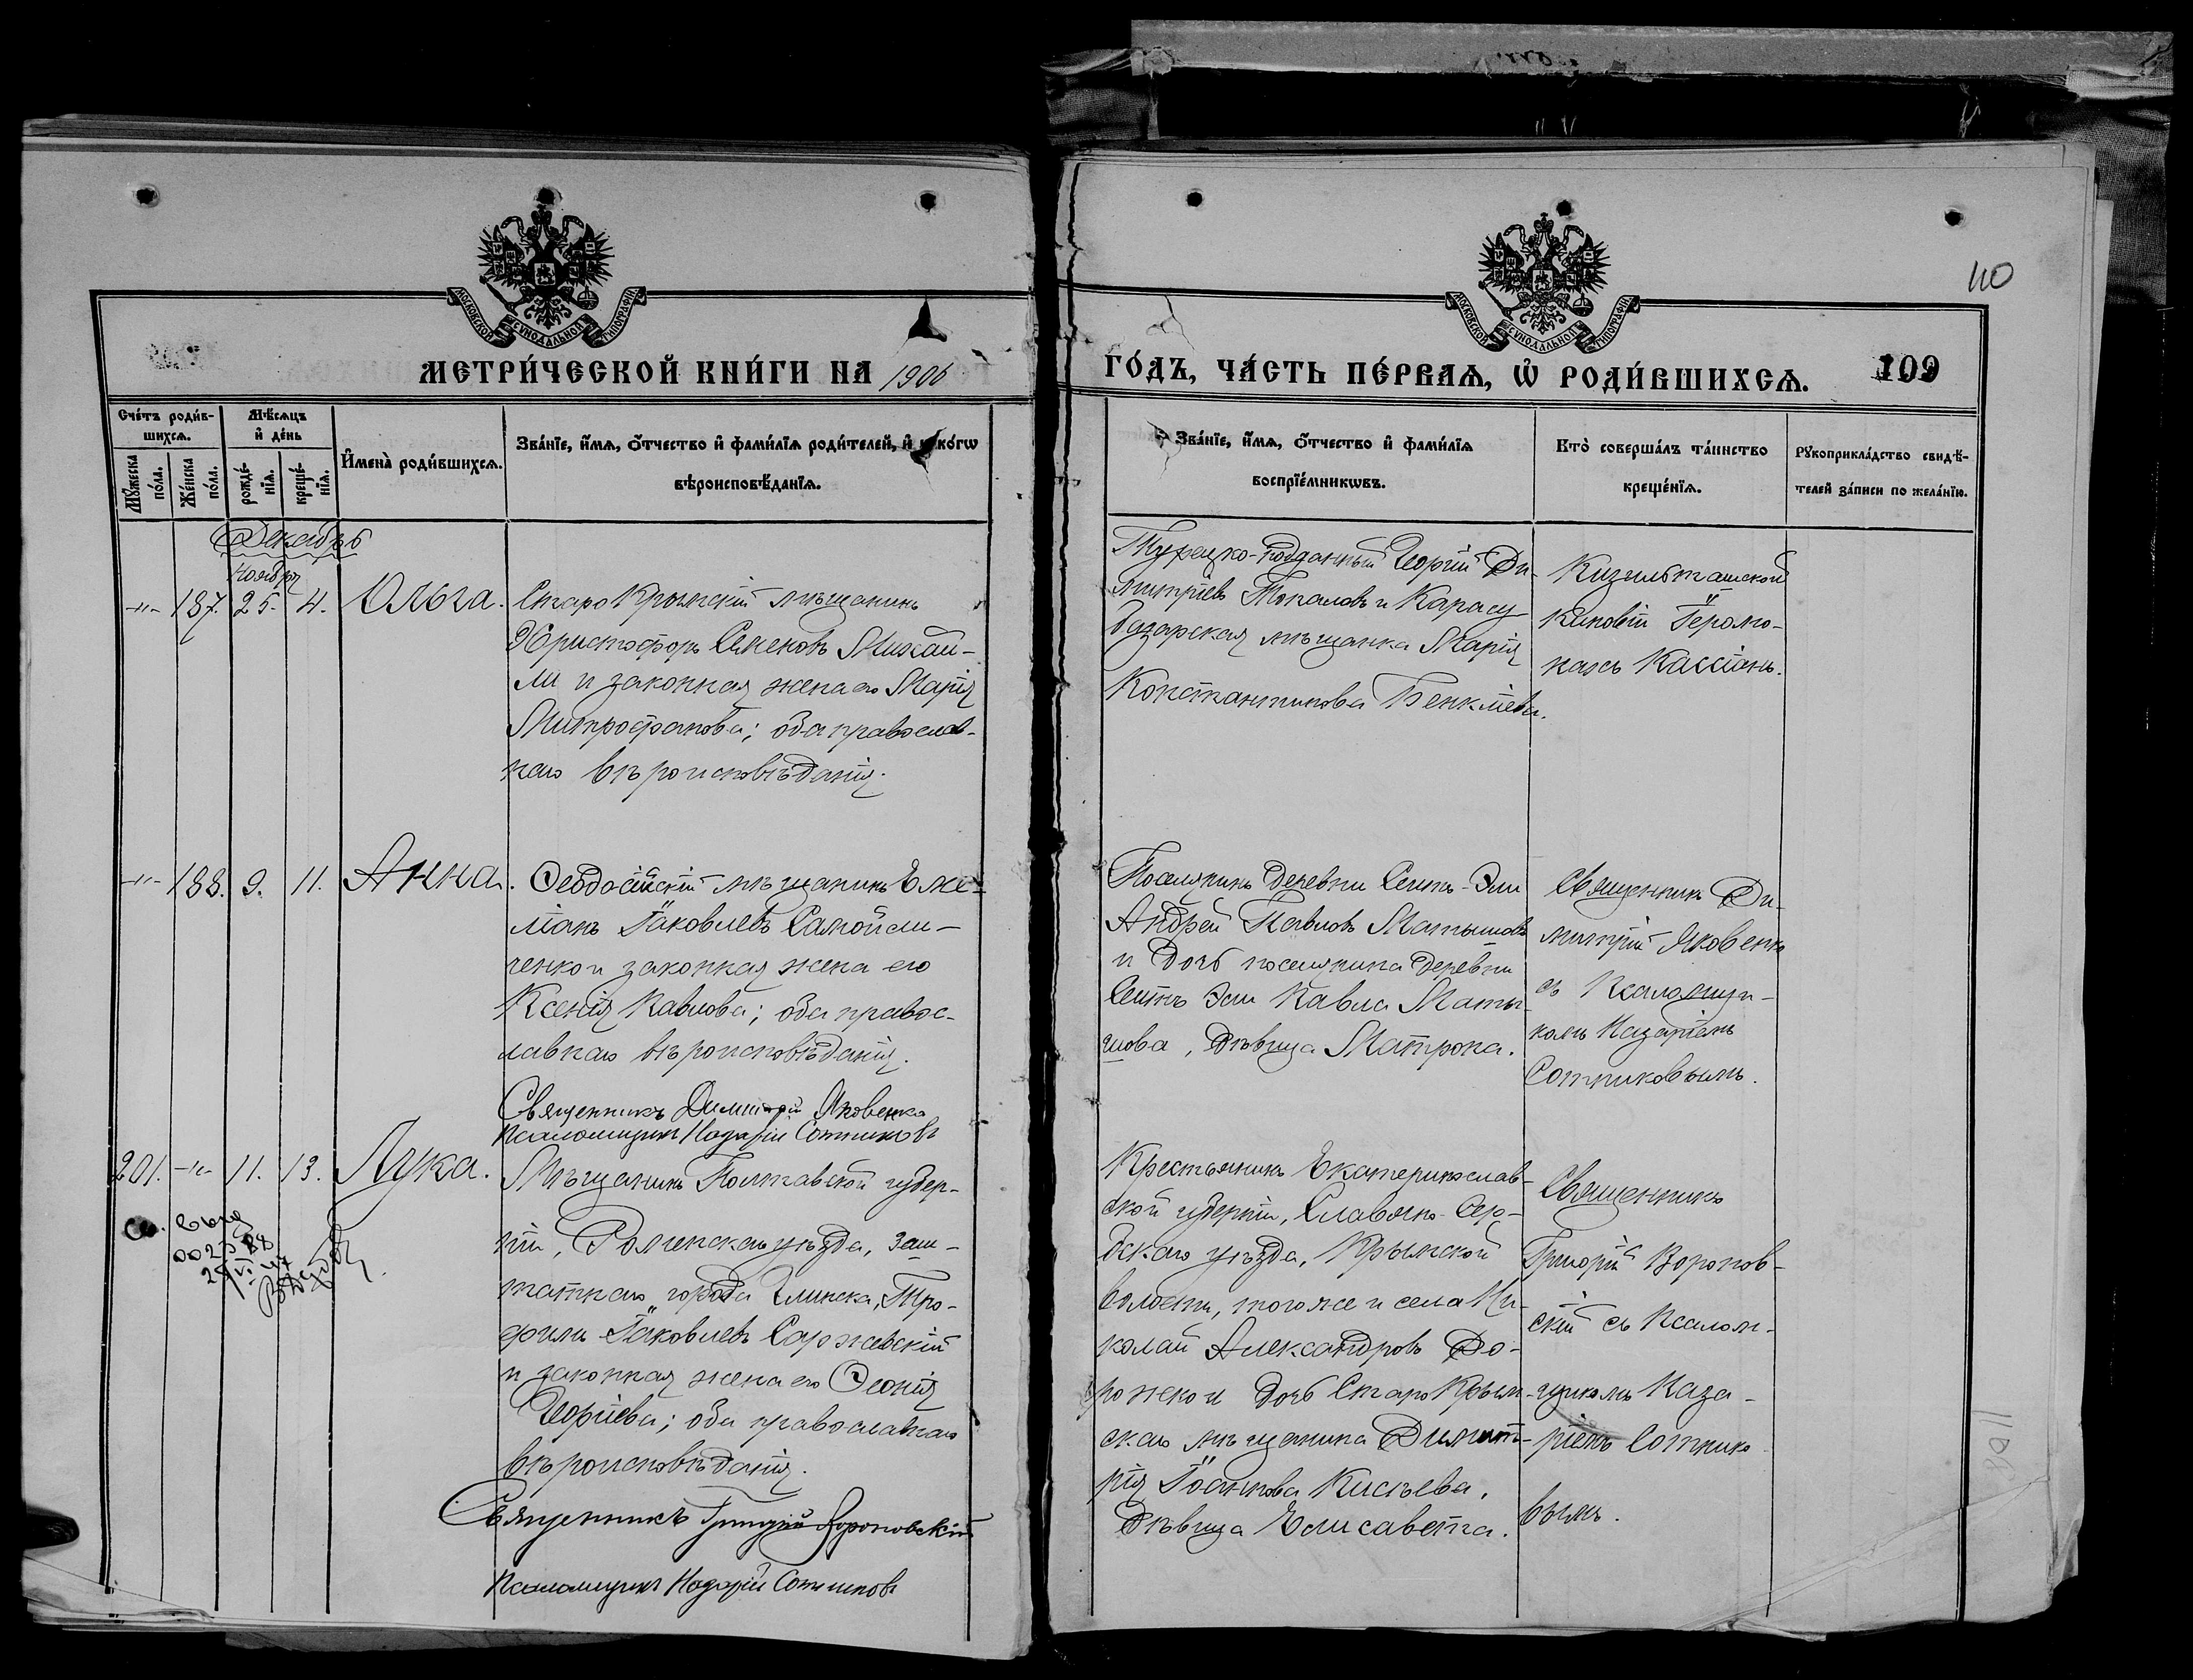 110
МОСКОВСКОЙ СУНОДАЛЬНОЙ ТИПОГРАФІИ
МОСКОВСКОЙ СУНОДАЛЬНОЙ ТИПОГРАФІИ
МЕТРИ́ЧЕСКОЙ КНИ́ГИ НА 1906
ГО́ДЪ, ЧА́СТЬ ПЕ́РВАѦ, Ѡ҆ РОДИ́ВШИХСѦ.
109
Сче́тъ роди́в-
шихсѧ.
Мѣ́сѧцъ
и҆ де́нь
Мꙋ́жеска
по́ла.
Же́нска
по́ла.
рожде́-
нїѧ.
креще́-
нїѧ.
И҆мена̀ роди́вшихсѧ.
Зва́нїе, и҆́мѧ, ѻ҆́тчество и҆ фами́лїѧ роди́телей, и҆ како́гѡ
вѣроисповѣ́данїѧ.
Зва́нїе, и҆́мѧ, ѻ҆́тчество и҆ фами́лїѧ
воспрїе́мникѡвъ.
Кто̀ соверша́лъ та́инство
креще́нїѧ.
Рꙋкоприкла́дство свидѣ́-
телей за́писи по жела́нїю.
Декабрь
Ноября
-"- 187. 25. 4. Ольга.
Старо Крымскій мѣщанинъ
Христофоръ Семеновъ Михай-
ли и законная жена его Марія
Митрофанова; оба православ-
наго вѣроисповѣданія.
Турецко-подданный Георгій Ди-
митріевъ Топаловъ и Карасу-
базарская мѣщанка Марія
Константинова
Кизильташской
киновіи Іеромо-
нахъ Кассіанъ.
-"- 188. 9. 11. Анна.
Ѳеодосійскій мѣщанинъ Еме-
ліанъ Іаковлевъ Самойли-
ченко и законная жена его
Ксенія Павлова; оба правос-
лавнаго вѣроисповѣданія.
Священникъ Димитрій Яковенко
Псаломщикъ Назарій Сотниковъ
Поселянинъ деревни Сеитъ-Эли
Андрей Павловъ
и дочь поселянина деревни
Сеитъ Эли Павла
дѣвица Матрона.
Священникъ Ди-
митрій Яковенко
съ Псаломщи-
комъ Назаріемъ
Сотниковымъ.
201. -"- 11. 13. Лука.
Мѣщанинъ Полтавской губер-
ніи, Роменскаго уѣзда, заш-
татнаго города Глинска, Тро-
фимъ Іаковлевъ Саржевскій
и законная жена его Ѳеонія
Георгіева; оба православнаго
вѣроисповѣданія.
Священникъ Григорій Вороновскій
Псаломщикъ Назарій Сотниковъ
Крестьянинъ Екатеринослав-
ской губерніи, Славяно-Сер-
бскаго уѣзда, Крымской
волости, тогоже и села Ни-
колай Александровъ До-
роженко и дочь Старо Крым-
скаго мѣщанина Димит-
рія Іоаннова Киспева,
дѣвица Елисавета.
Священникъ
Григорій Воронов-
скій съ Псалом-
щикомъ Наза-
ріемъ Сотнико
вымъ.